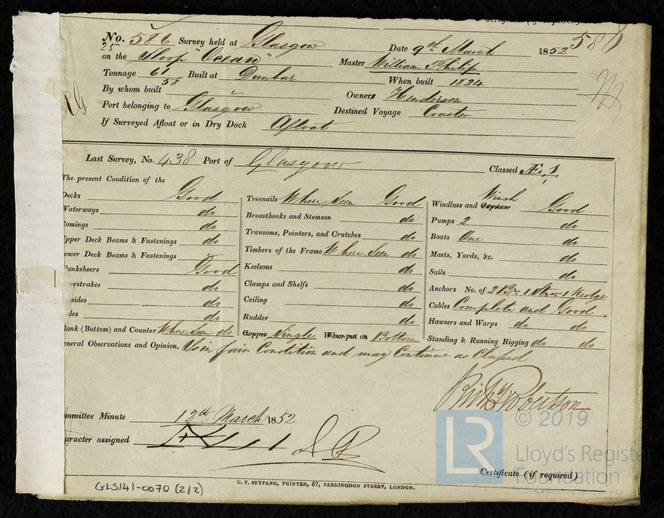 No. 586 Survey held at Glasgow Date 9th March 1852 586
25 on the Sloop "Ocean" Master William Philip
Tonnage 61 Built at Dunbar When built 1824
58
By whom built Owners Henderson
Port belonging to Glasgow Destined Voyage Coaster
If Surveyed Afloat or in Dry Dock Afloat
Last Survey, No. 438 Port of Glasgow Classed Æ.1
The present Condition of the
Decks Good
Waterways do
Comings do
Upper Deck Beams & Fastenings do
Lower Deck Beams & Fastenings
Planksheers Good
erstrakes do
sides do
des do
lank (Bottom) and Counter Where Seen do
Treenails Where Seen Good
Breasthooks and Stemson do
Transoms, Pointers, and Crutches do
Timbers of the Frame Where Seen do
Keelsons do
Clamps and Shelfs do
Ceiling do
Rudder do
Copper Single When put on Bottom
Windlass and Capstan Winch Good
Pumps 2 do
Boats One do
Masts, Yards, &c. do
Sails do
Anchors No. of 2 Br. 1 Stm 1 Kedge
Cables Complete and Good
Hawsers and Warps do do
Standing & Running Rigging do do
eneral Observations and Opinion, Is in fair Condition and may Continue as Classed
Robertson
mmittee Minute 12th March 1852
aracter assigned
Certificate (if required)
C. F. SEYFANG, PRINTER, 57, FARRINGDON STREET, LONDON.
GLS141-0070 (2/2)
© 2019
LR
Lloyd's Register
Foundation